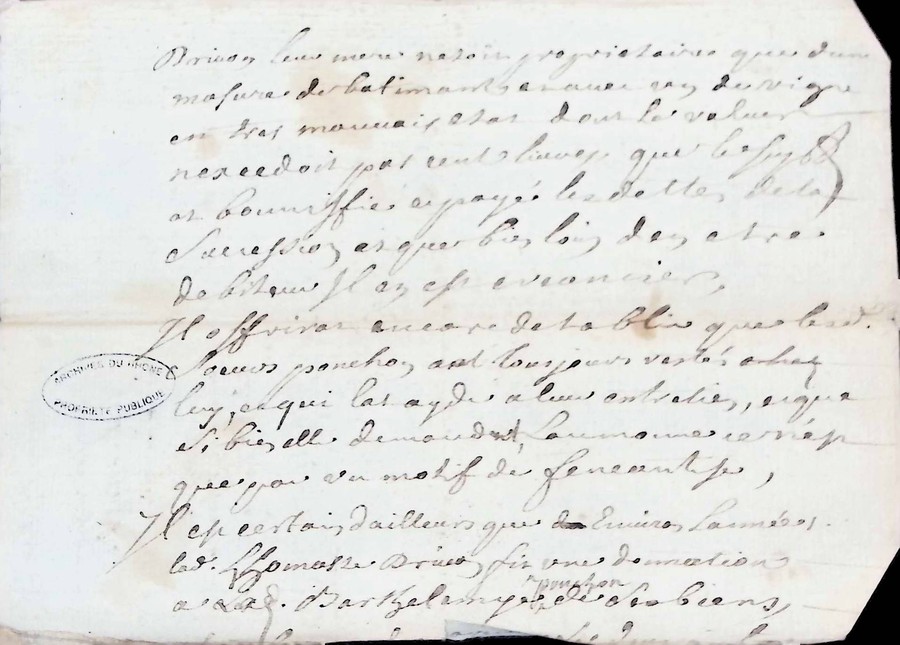 Drivon leur mere netoit proprietaire que dune
masure de batiment et avec un de vigne
en tres mauvais etat dont la valeur
nexcedoit pas cent livres que le supt
at bonniffié et payé les dettes de la
succession et que bien loin den etre
debiteur Il en est creancier,
Il offrirat encore detablir que lesd.
Soeurs ponchon ont toujours resté chez
luy, et qui lat aydé a leur entretien, et que
si bien elle demandent Laumone ce nest
que par un motif de feneantise,
Il est certain dailleurs que Environ Lannée
lad. Thomasse Drivon fit une donnation
ponchon
a Lad. Barthelemye de ses biens,
ARCHIVES DU RHONE
PROPRIETE PUBLIQUE